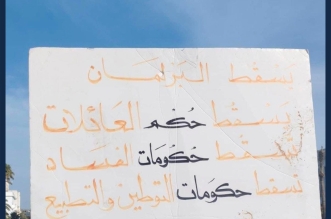 يسقط البرلمان
يسقط حكم العائلات
تسقط حكومات الفساد
تسقط حكومات التوطين والتطبيع